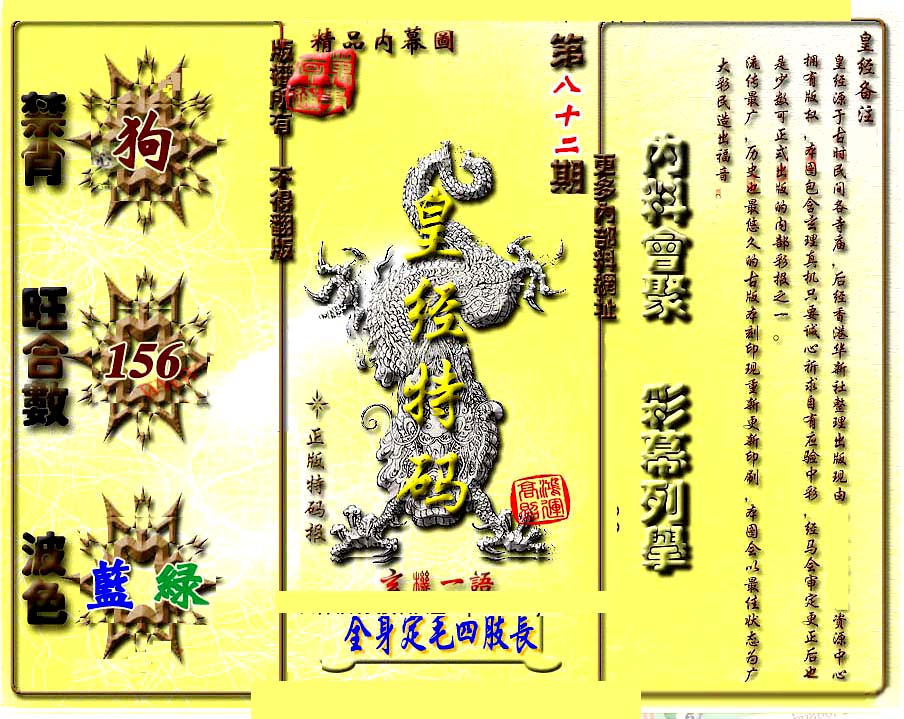 精品内幕圖
第八十二期
版權所有 不得翻版
更多內部料網址
禁肖
狗
旺合數
156
波色
藍 綠
皇经特码
正版特码报
鴻運高照
玄機一語
全身定毛四肢長
內料會聚
彩幕列舉
皇经备注
皇经源于古时民间各寺庙，后经香港华新社整理出版现由
资源中心
拥有版权，本图包含玄理真机只要诚心祈求自有应验中彩，经马会审定更正后也
是少数可正式出版的内部彩报之一。
流传最广，历史也最悠久的古版本刻印现重新更新印刷，本图会以最佳状态为广
大彩民造出福音